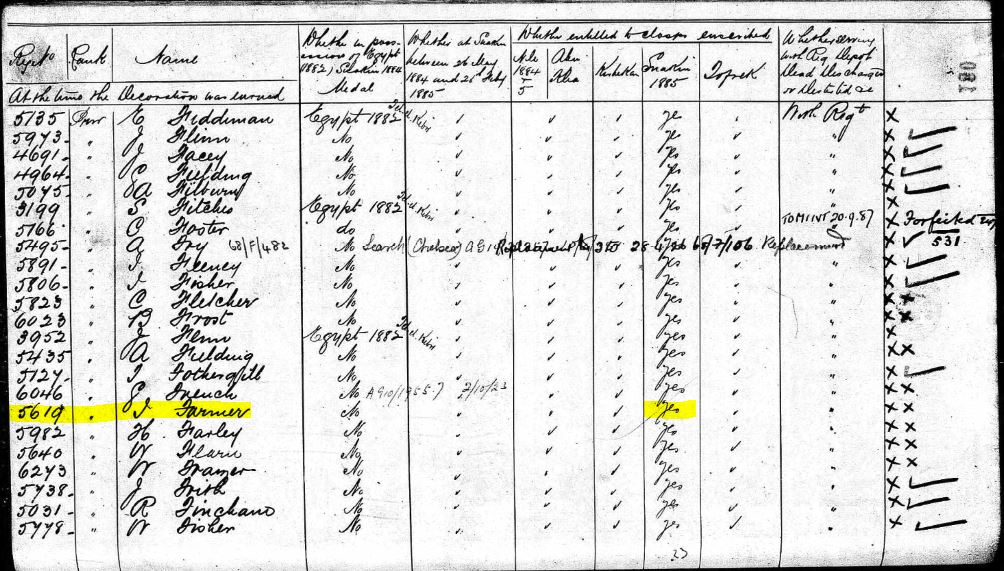 Regtl No Rank Name Whether in possession of Egypt 1882/Suakin 1884 Medal Whether at Suakin between 26 May 1884 and 26 Feby 1885 Whether entitled to clasps inscribed Nile 1884/5 Abu Klea Kirbekan Suakin 1885 Tofrek Whether serving with Reg Depot Dead Discharged or Deserted &c
At the time the Decoration was earned
5135 Priv E Fiddiman Egypt 1882 Tel el Kebir yes With Regt
5973 " J Flinn No yes "
4691 " J Facey No yes "
4964 " C Fielding No yes "
5075 " A Filburn No yes "
3199 " S Fitches Egypt 1882 Tel el Kebir yes "
5766 " C Foster do yes TO MINT 20-9-87 Forfeited
5495 " A Fry 68/F/482 No Search (Chelsea) Replacement 531
5891 " J Feeney No yes "
5806 " J Fisher No yes "
5823 " C Fletcher No yes "
6023 " B Frost No yes "
3952 " J Fenn Egypt 1882 Tel el Kebir yes "
5435 " A Fielding No yes "
5127 " J Fothergill No yes "
6046 " French No 7/10/23 yes "
5619 " J Farmer No yes "
5982 " H Farley No yes "
5640 " W Flarn No yes "
6273 " W Frazer No yes "
5738 " J Frith No yes "
5031 " R Finchand No yes "
5778 " W Fisher No yes "
23